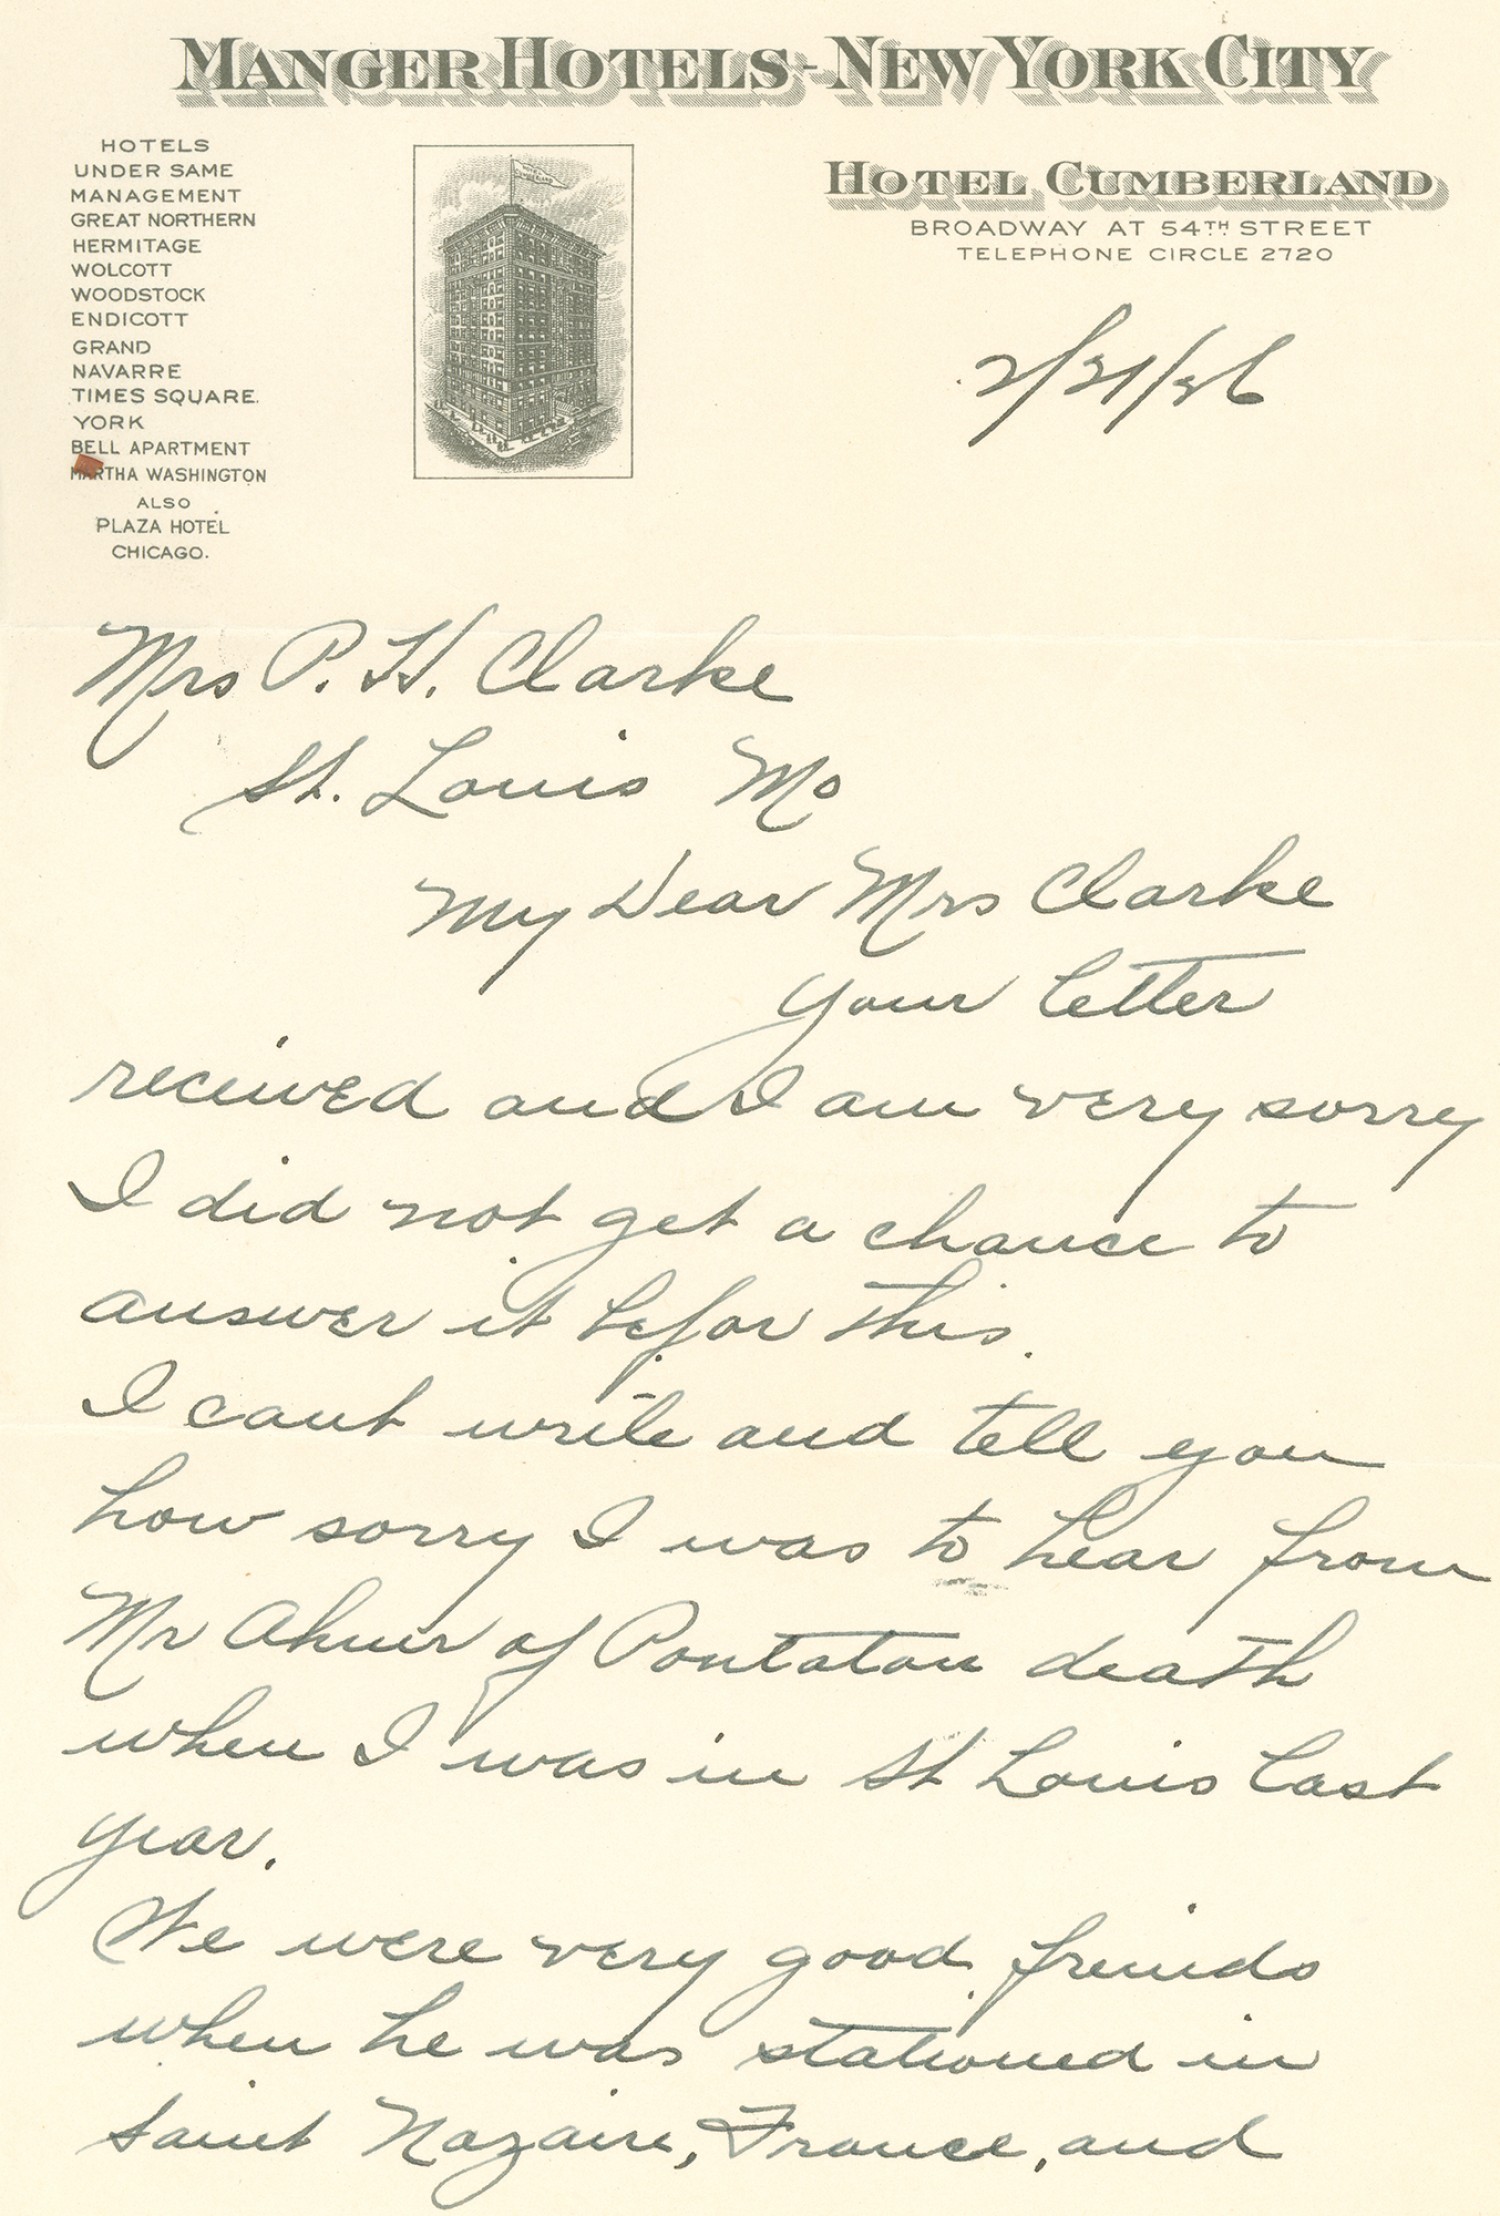 MANGER HOTELS-NEW YORK CITY
HOTELS
UNDER SAME
MANAGEMENT
GREAT NORTHERN
HERMITAGE
WOLCOTT
WOODSTOCK
ENDICOTT
GRAND
NAVARRE
TIMES SQUARE.
YORK
BELL APARTMENT
MARTHA WASHINGTON
ALSO
PLAZA HOTEL
CHICAGO.
HOTEL CUMBERLAND
BROADWAY AT 54TH STREET
TELEPHONE CIRCLE 2720
Mrs P. H. Clarke
St. Louis Mo
My Dear Mrs Clarke
Your letter
received and I am very sorry
I did not get a chance to
answer it befor this.
I cant write and tell you
how sorry I was to hear from
Mr of death
when I was in St Louis last
year.
We were very good freinds
when he was stationed in
Saint Nazaire, France, and